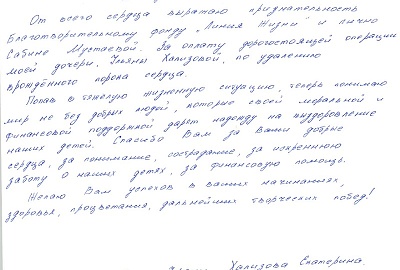 От всего сердца выражаю признательность
Благотворительному фонду „Линия Жизни" и лично
Сабине Мустаевой. За оплату дорогостоящей операции
моей дочери, Ульяны Хализовой, по удалению
врождённого порока сердца.
Попав в тяжелую жизненную ситуацию, теперь понимаю
мир не без добрых людей, которые своей моральной и
финансовой поддержкой дарят надежду на выздоровление
наших детей. Спасибо Вам за Ваши добрые
сердца, за понимание, сострадание, за искреннюю
заботу о наших детях, за финансовую помощь.
Желаю Вам успехов в ваших начинаниях,
здоровья, процветания, дальнейших творческих побед!
Хализова Екатерина.